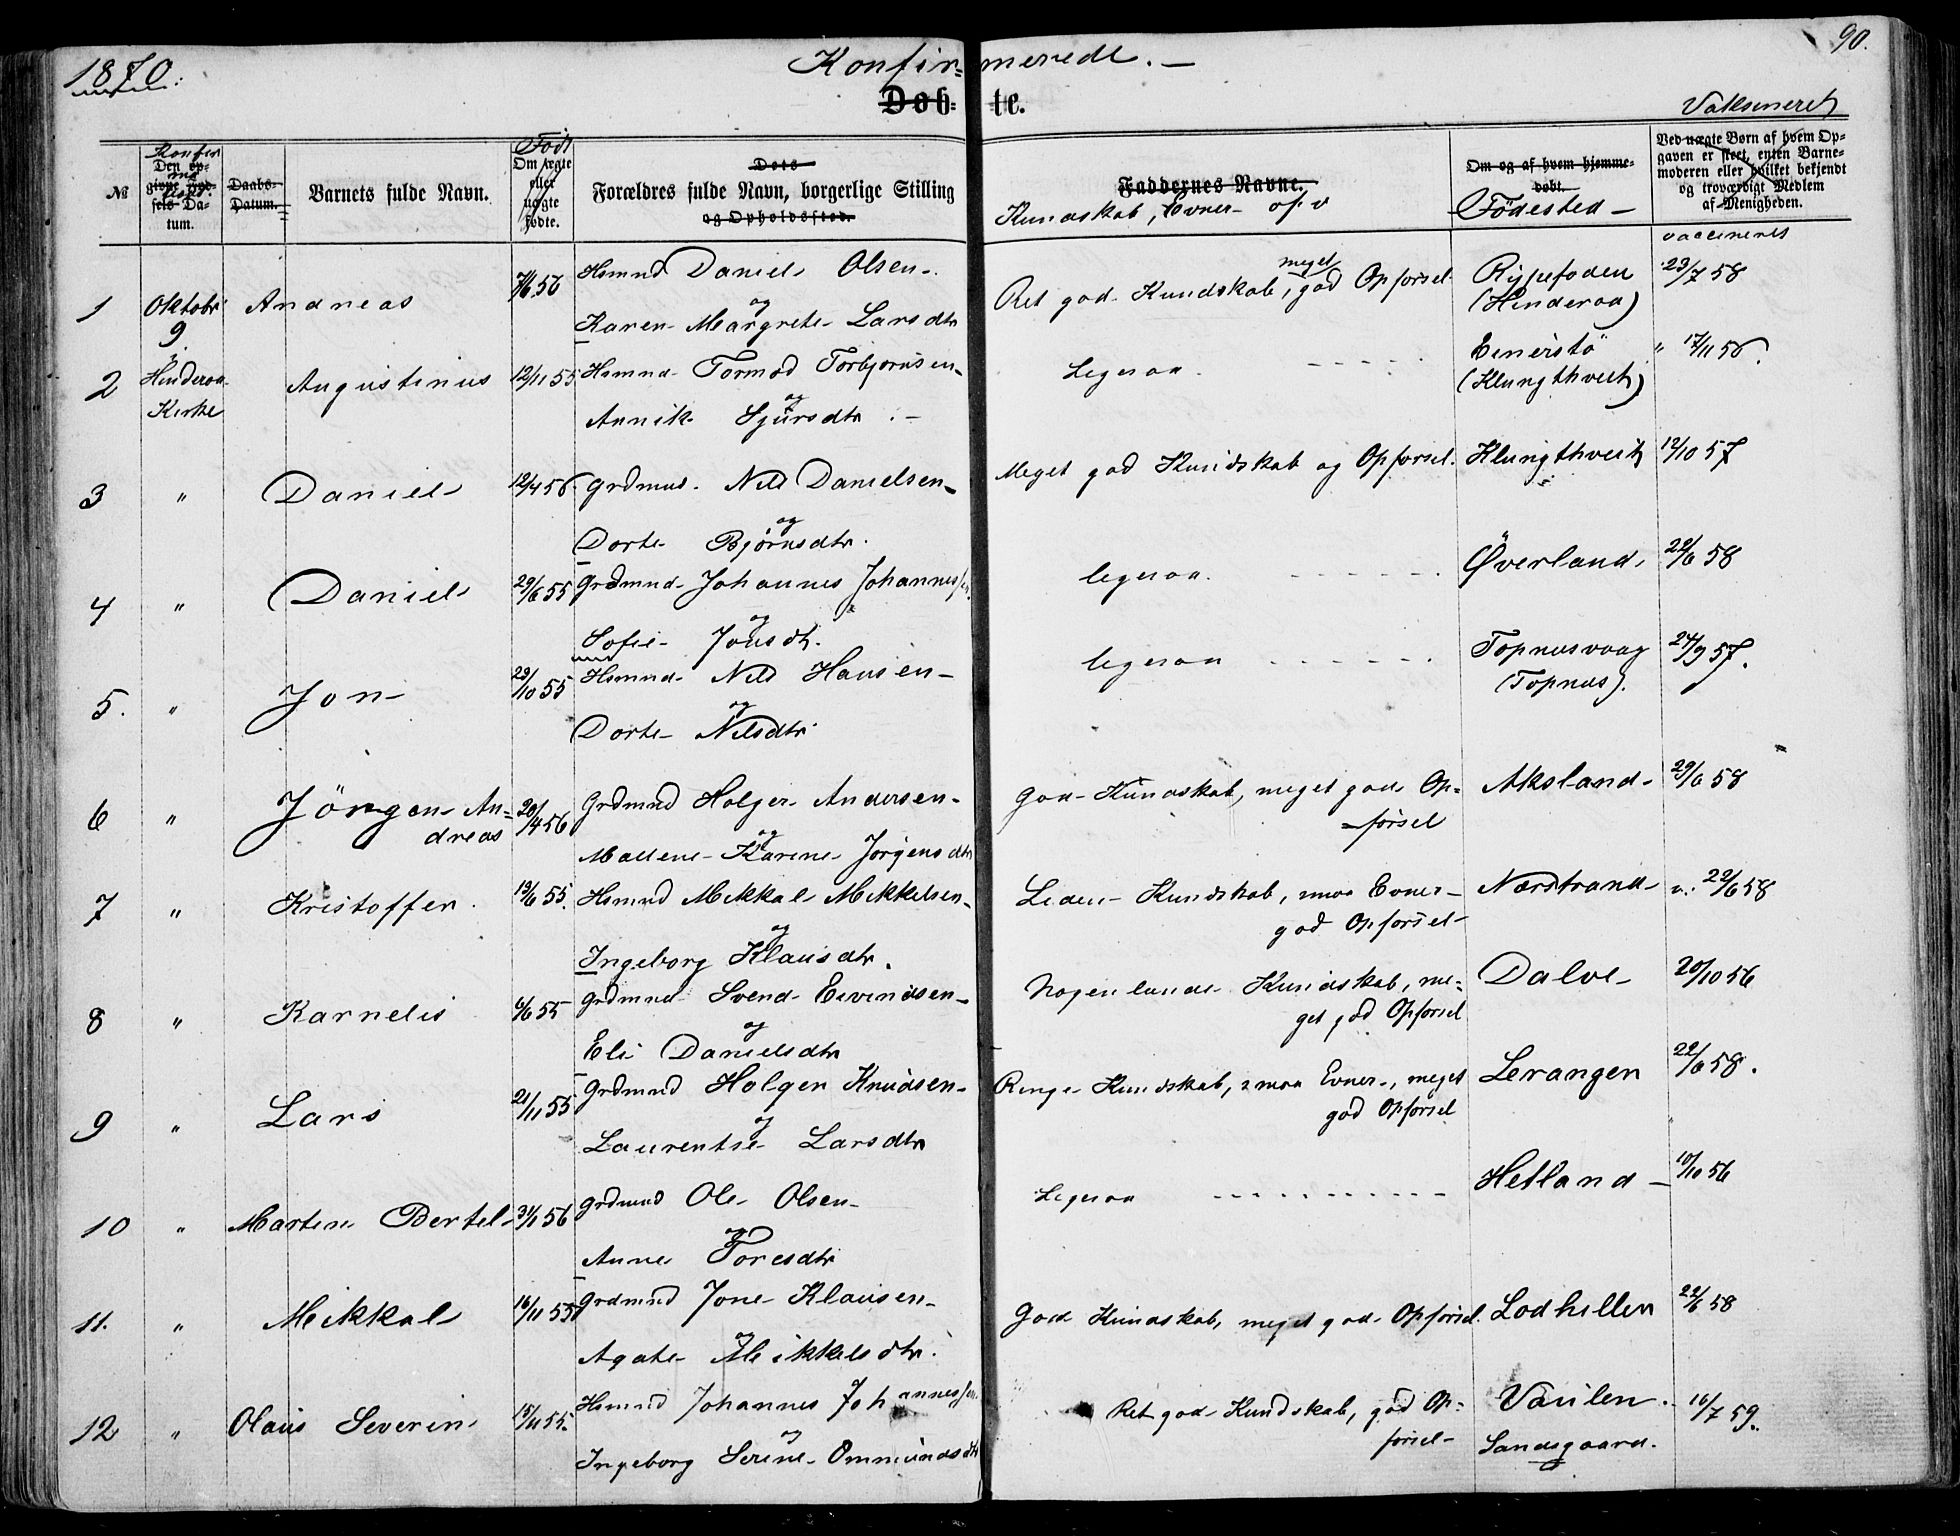 1870.
Konfir=merede. —
Døb=te.
90.
Vaksineret
№
Konfir
ma
Den op=
givne
fels Da=
tum.
Daabs=
Datum.
Barnets fulde Navn.
Født
Om ægte
eller
uægte
fødte.
Dets
Forældres fulde Navn, borgerlige Stilling
og Opholdssted.
Faddernes Navne.
Kundskab, Evner- osv
Om og af hvem hjemme=
døbt.
Födested —
Ved uægte Børn af hvem Op=
gaven er skeet, enten Barne=
moderen eller hvilket bekjendt
og troværdigt Medlem
af Menigheden.
vaccineret
1 Oktobr 9 Andreas 7/6 56 Hsmnd Daniel Olsen-
og
Karen Margrete Larsdtr
Ret god Kundskab, meget god Opførsel
(Hinderaa)
23/7 58
2 Hinderaa Kirke Augustinus 12/11 55 Hsmnd Tormod Torbjørnsen
og
Annik Sjursdtr. —
Ligesaa - - - - -
Einerstö
(Klungthveit)
" 17/11 56.
3 " Daniel 12/4 56 Grdmnd. Nils Danielsen
og
Dorte Bjørnsdtr.
Meget god Kundskab og Opførsel. Klungthveit 12/10 57
4 " Daniel 29/6 55 Grdmnd Johannes Johannesen.
og
Sofie Jonsdt.
ligesaa. - - - - - - Øverland 22/6 58
5. " Jon 23/10 55 Hsmnd Nils Hansen
og
Dorte Nilsdtr
ligesaa - - - - - - Topnusvaag
(Topnus).
24/9 57.
6 " Jörgen An=
dreas
20/4 56 Grdmnd Holger Andersen
og
Mallene Karine Jørgensdtr
God Kundskab, meget god Op=
førsel
Aksland 29/6 58
7 " Kristoffer. 13/6 55. Hsmnd Mikkal Mikkelsen
og
Ingeborg Klausdtr.
Liden Kundskab, smaa Evner
god Opførsel
Nærstrand v: 22/6 58
8 " Karnelis 6/6 55 Grdmnd Svend Eivindsen
og
Eli Danielsdtr
Nogenlunde Kundskab, me=
get god Opførsel
Dalve 20/10 56
9 " Lars 21/11 55 Grdmnd Holger Knudsen
og
Laurentse Larsdtr
Ringe Kundskab, smaa Evner, meget
god Opførsel
Lerangen 22/6 58.
10 " Martin Bertel 31/1 56 Grdmnd Ole Olsen
og
Anne Toresdtr
Ligesaa - - - - - - - - - - - Hetland 10/10 56
11. " Mikkal 16/11 55 Grdmnd Jone Klausen
og
Agate Mikkelsdtr.
God Kundskab, meget god Opførsel. Lodhellen 22/6 58
12 " Olaus Severin 15/11 55. Hsmnd Johannes Johannessen
og
Ingeborg Serine Ommundsdtr
Ret god Kundskab, god Op=
førsel
Vaulen.
Sandsgaard.
16/7 59.